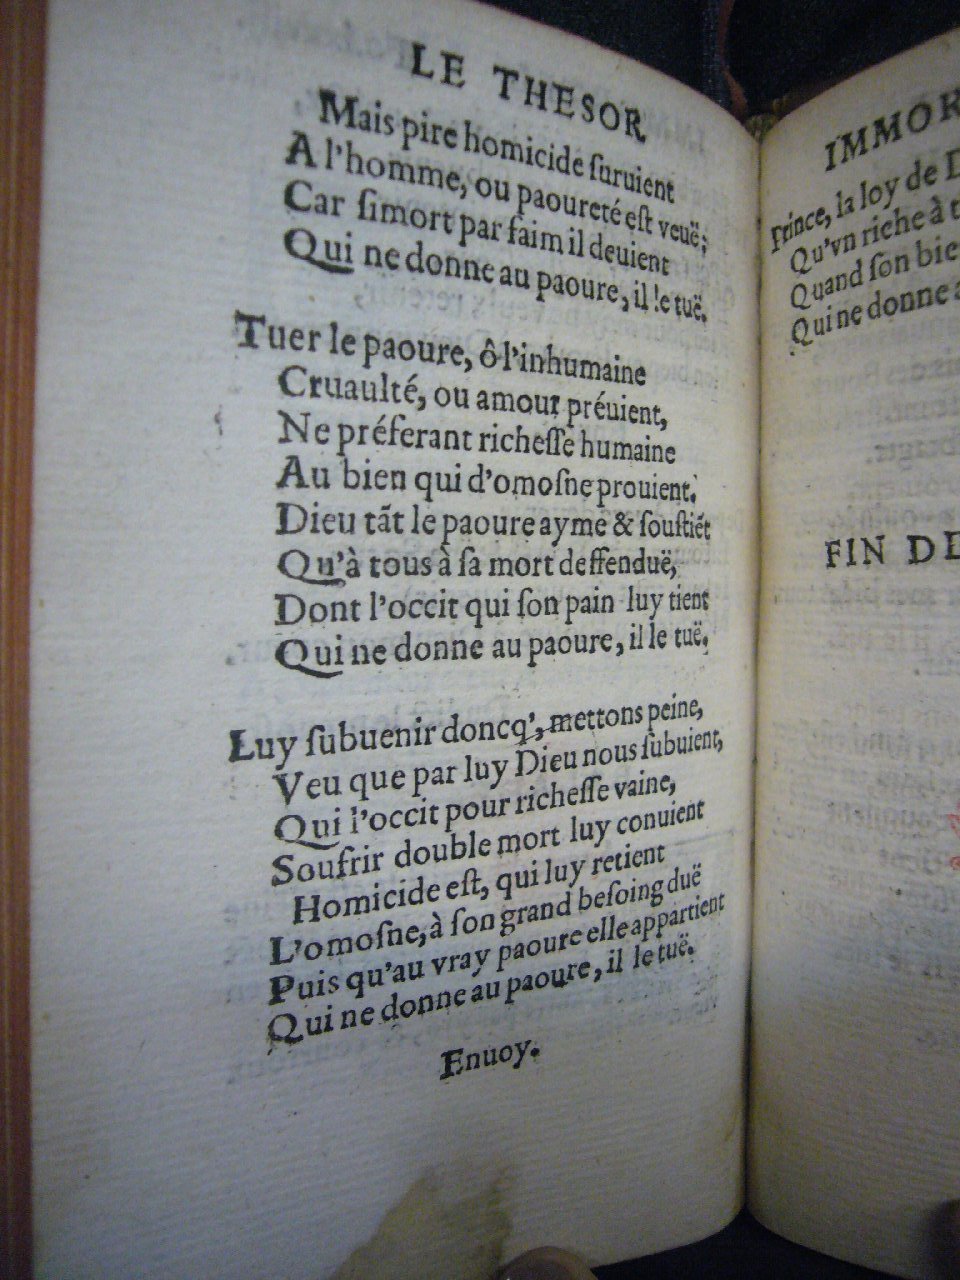 LE THESOR
Mais pire homicide ſuruient
A l'homme, ou paoureté eſt veuë;
Car ſimort par faim il deuient
Qui ne donne au paoure, il le tuë.
Tuer le paoure, ô l'inhumaine
Cruaulté, ou amour préuient,
Ne préferant richeſſe humaine
Au bien qui d'omoſne prouient.
Dieu tãt le paoure ayme & ſouſtiẽt
Qu'à tous à ſa mort deffenduë,
Dont l'occit qui ſon pain luy tient
Qui ne donne au paoure, il le tuë.
Luy ſubuenir doncq', mettons peine,
Veu que par luy Dieu nous ſubuient,
Qui l'occit pour richeſſe vaine,
Soufrir double mort luy conuient
Homicide eſt, qui luy retient
L'omoſne, à ſon grand beſoing duë
Puis qu'au vray paoure elle appartient
Qui ne donne au paoure, il le tuë.
Enuoy.
IMMOR
Prince, la loy de D
Qu'vn riche à t
Quand ſon bie
Qui ne donne a
FIN DE